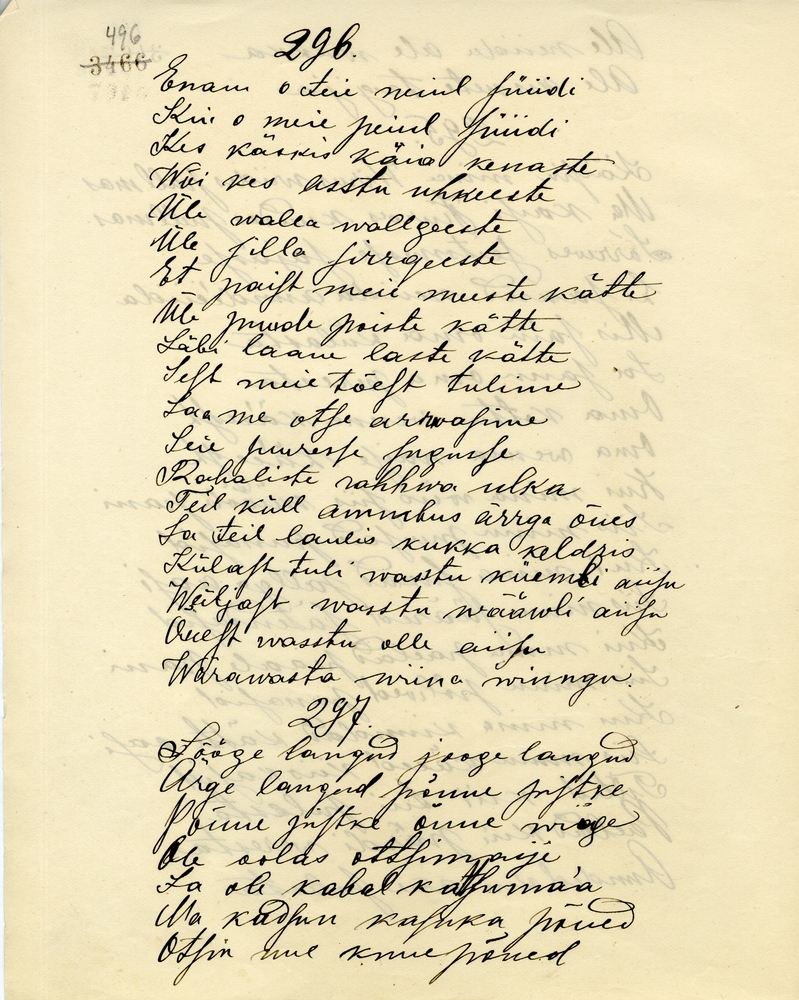 496
3466
296.
Enam o teie neiul süüdi
Kui o meie peiul süüdi
Kes käskis käia kenaste
Wõi kes asstu uhkeeste
Üle walla wallgeeste
Üle silla sirrgeeste
Et paist meie meeste kätte
Üle puude poiste kätte
Läbi laane laste kätte
Sest meie tõest tulime
Laame otse arrwasime
Seie juuresse sugusse
Rahaliste rahhwa ulka
Teil küll ammbus ärrga õues
Ja teil laulis kukka keldris
Külast tuli wasstu küembli aiisu
Wäiljast wasstu wääwli aiisu
Õuest wasstu olle aiisu
Wärawasta wiina winngu.
297.
Sööge langud jooge langud
Ärge langud põnne pistke
Põnne pistke õnne wiige
Ole oolas ottsimaije
Ja ole kabal katsumaa
Ma kadsun kasuka põued
Otsin uue kuue põued